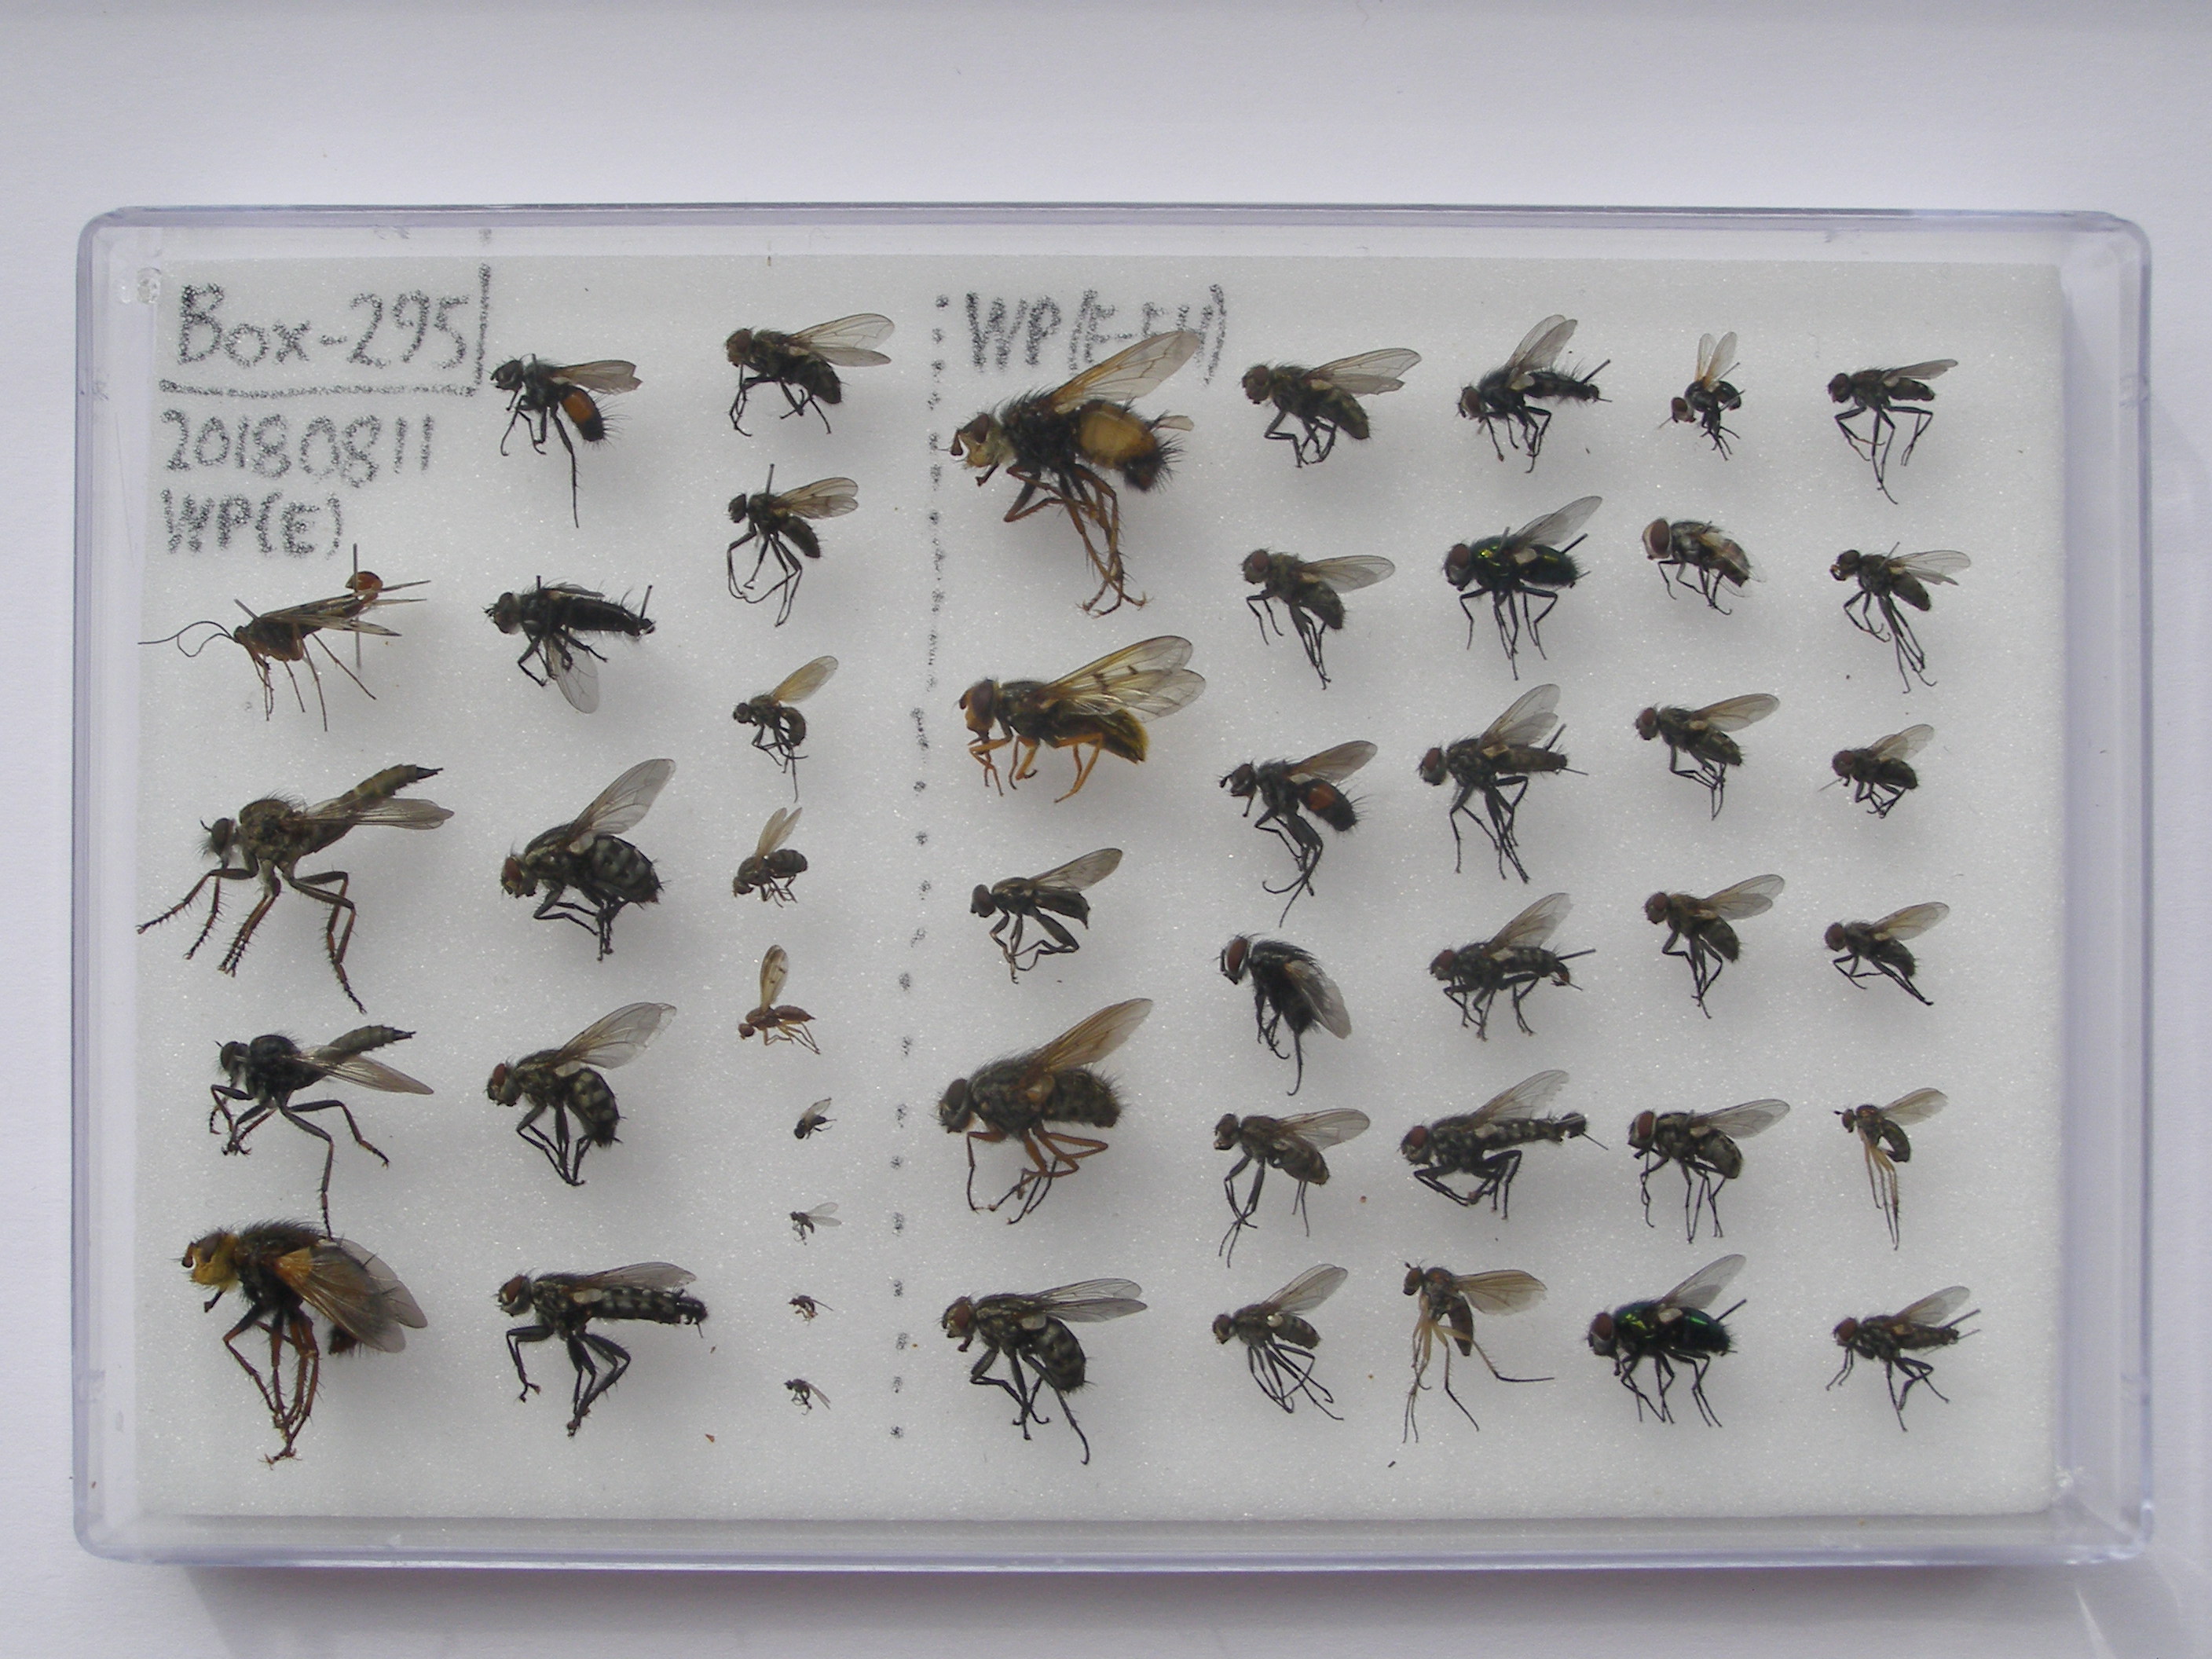 Box-295
20180811
WP(E)